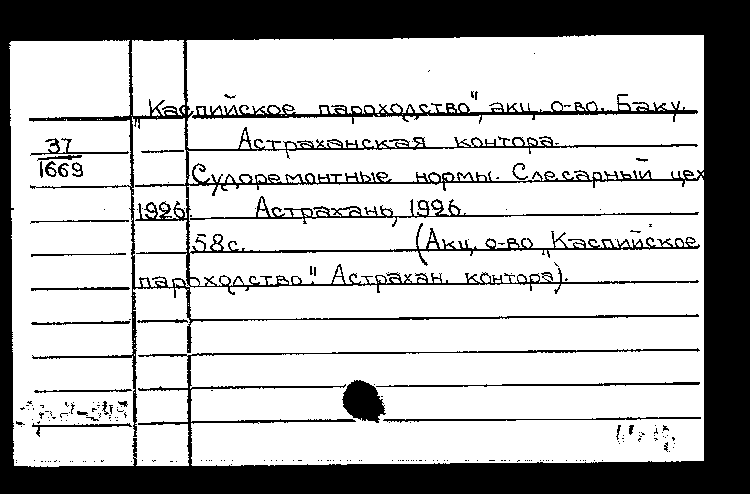 „Каспийское пароходство", акц. о-во. Баку.
Астраханская контора.
37
1669
Судоремонтные нормы. Слесарный цех
1926
Астрахань, 1926.
58с. (Акц. о-во „Каспийское
пароходство". Астрахан. контора).